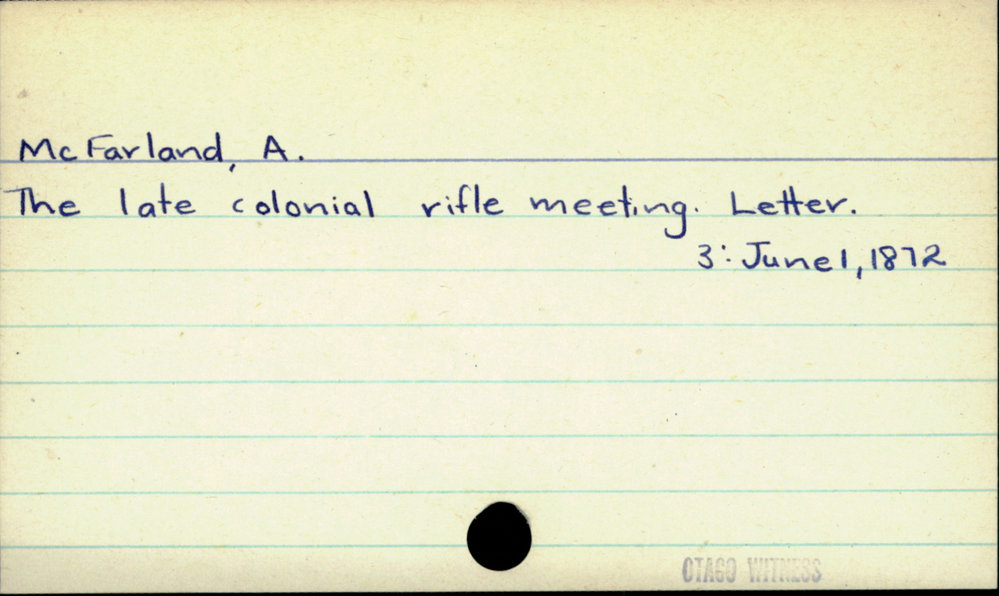 McFarland, A.
The late colonial rifle meeting. Letter.
3: June 1, 1872
OTAGO WITNESS